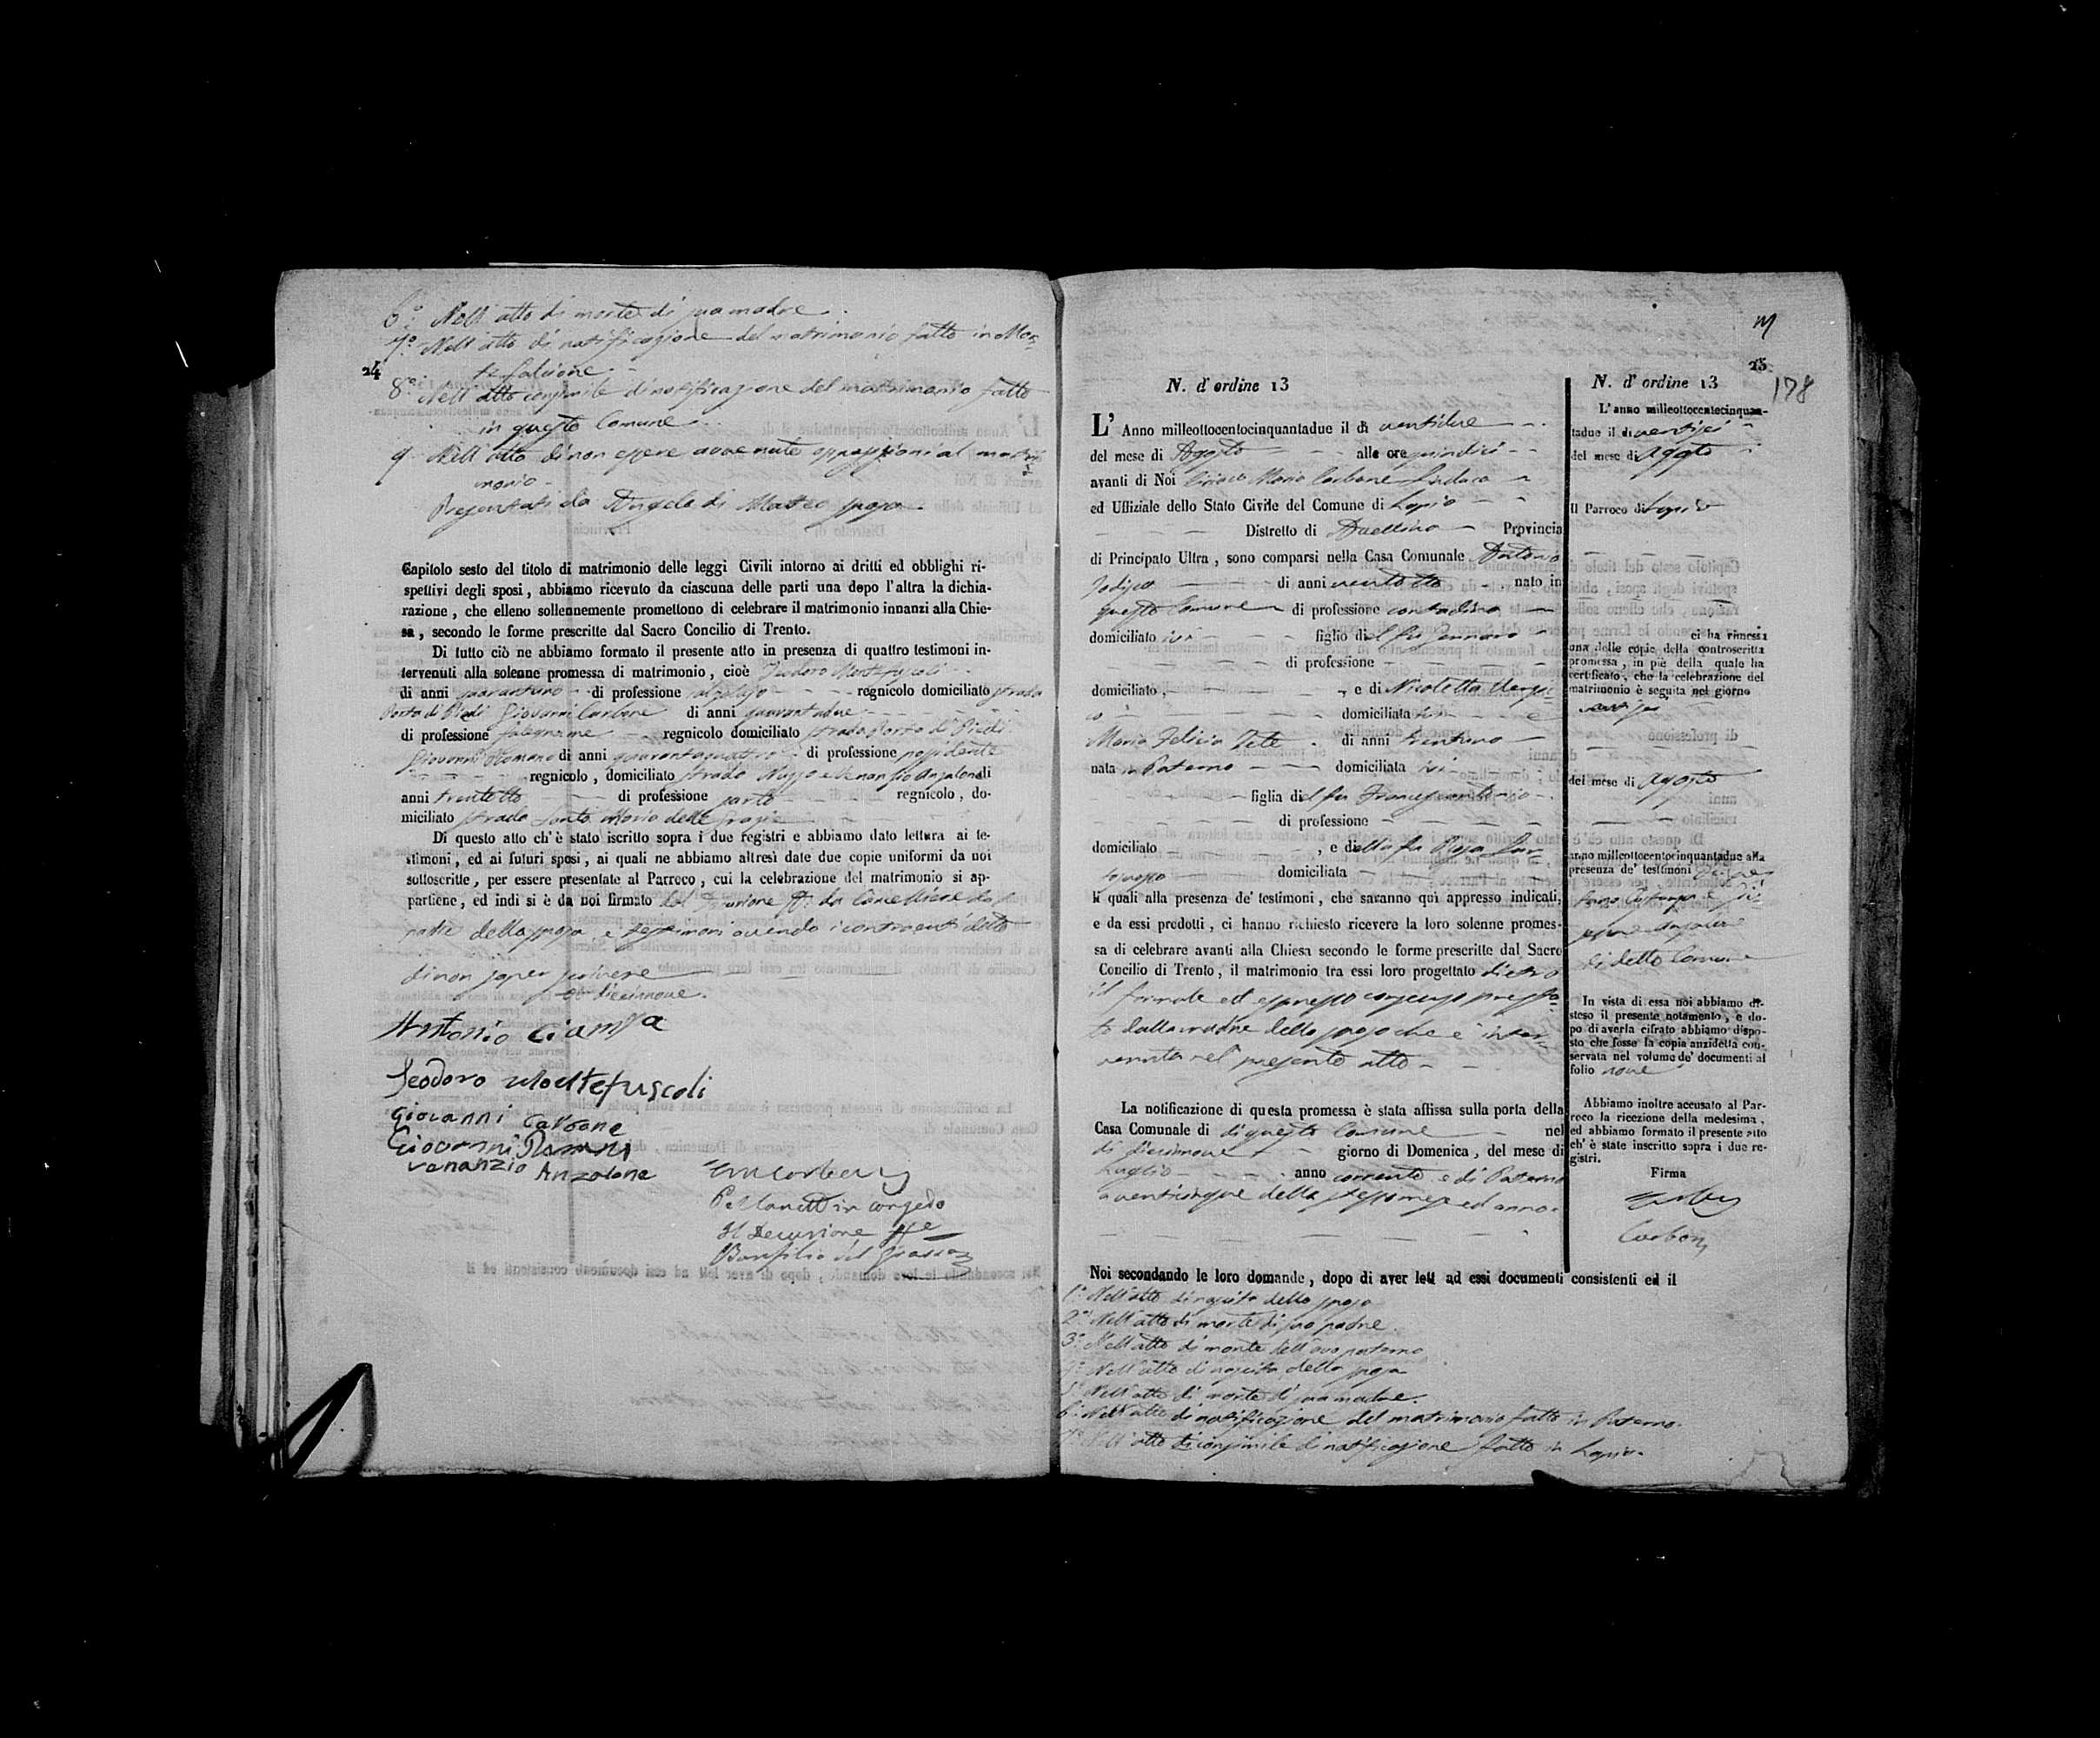 6.° Nell' atto di morte di sua madre.
7.° Nell' atto di notificazione del matrimonio fatto in Mon-
24
tefalcione.
8.° Nell' atto consimile di notificazione del matrimonio fatto
in questo Comune.
9. Nell' atto di non essere avvenute opposizioni al matri
monio.
Presentati da Angela di Matteo sposa.
Capitolo sesto del titolo di matrimonio delle leggi Civili intorno ai dritti ed obblighi ri-
spettivi degli sposi, abbiamo ricevuto da ciascuna delle parti una dopo l'altra la dichia-
razione, che elleno sollennemente promettono di celebrare il matrimonio innanzi alla Chie-
sa, secondo le forme prescritte dal Sacro Concilio di Trento.
Di tutto ciò ne abbiamo formato il presente atto in presenza di quattro testimoni in-
tervenuti alla solenne promessa di matrimonio, cioè Teodoro Montefuscoli
di anni quarantuno di professione regnicolo domiciliato strada
Porta di Piedi Giovanni Carbone di anni quarantadue
di professione falegname regnicolo domiciliato strada Porta di Piedi
Giovanni Romano di anni quarantaquattro di professione possidente
regnicolo, domiciliato strada e Venanzio Anzalone di
anni trentotto di professione sarto regnicolo, do-
miciliato strada Santa Maria delle Grazie
Di questo atto ch'è stato iscritto sopra i due registri e abbiamo dato lettura ai te-
stimoni, ed ai futuri sposi, ai quali ne abbiamo altresì date due copie uniformi da noi
sottoscritte, per essere presentate al Parroco, cui la celebrazione del matrimonio si ap-
partiene, ed indi si è da noi firmato dal Decurione ff. da Cancelliere dal
padre della sposa e testimoni avendo i contraenti detto
di non saper scrivere
diecinnove.
Antonio Ciampa
Teodoro Montefuscoli
Giovanni Carbone
Giovanni Romano
Venanzio Anzalone
in congedo
Il Decurione ff
Bonfilio del Grasso
25
178
N. d'ordine 13
L' Anno milleottocentocinquantadue il dì ventidue
del mese di Agosto alle ore quindici
avanti di Noi Ciriaco Maria Carbone Sindaco
ed Uffiziale dello Stato Civile del Comune di Lapio
Distretto di Avellino Provincia
di Principato Ultra, sono comparsi nella Casa Comunale Antonio
di anni ventotto nato in
questo Comune di professione contadino
domiciliato ivi figlio del fu Gennaro
di professione
domiciliato, e di Nicoletta
domiciliata ivi e
Maria Felicia Tete di anni trentuno
nata in Paterno domiciliata ivi
figlia del fu Francescantonio
di professione
domiciliato, e della fu Rosa
domiciliata
li quali alla presenza de' testimoni, che saranno qui appresso indicati,
e da essi prodotti, ci hanno richiesto ricevere la loro solenne promes-
sa di celebrare avanti alla Chiesa secondo le forme prescritte dal Sacro
Concilio di Trento, il matrimonio tra essi loro progettato dietro
il formale ed espresso consenso presta-
to dalla madre dello sposo che è inter-
venuta nel presente atto
La notificazione di questa promessa è stata affissa sulla porta della
Casa Comunale di di questo Comune nel
dì diecinnove giorno di Domenica, del mese di
Luglio anno corrente e di Paterno
a venticinque dello stesso mese ed anno.
N. d'ordine 13
L'anno milleottocentocinquan-
tadue il dì ventisei
del mese di Agosto
Il Parroco di Lapio
ci ha rimessa
una delle copie della controscritta
promessa, in piè della quale ha
certificato, che la celebrazione del
matrimonio è seguita nel giorno
ventisei
del mese di Agosto
anno milleottocentocinquantadue alla
presenza de' testimoni
di detto Comune
In vista di essa noi abbiamo di-
steso il presente notamento, e do-
po di averla cifrato abbiamo dispo-
sto che fosse la copia anzidetta con-
servata nel volume de' documenti al
folio nove
Abbiamo inoltre accusato al Par-
roco la ricezione della medesima,
ed abbiamo formato il presente atto
ch' è stato inscritto sopra i due re-
gistri.
Firma
Carbone
Noi secondando le loro domande, dopo di aver letti ad essi documenti consistenti ed il
1.° Nell' atto di nascita dello sposo
2.° Nell' atto di morte di suo padre.
3.° Nell' atto di morte dell' avo paterno
4.° Nell' atto di nascita della sposa
5.° Nell' atto di morte di sua madre.
6.° Nell' atto di notificazione del matrimonio fatto in Paterno.
7.° Nell' atto consimile di notificazione fatto in Lapio.